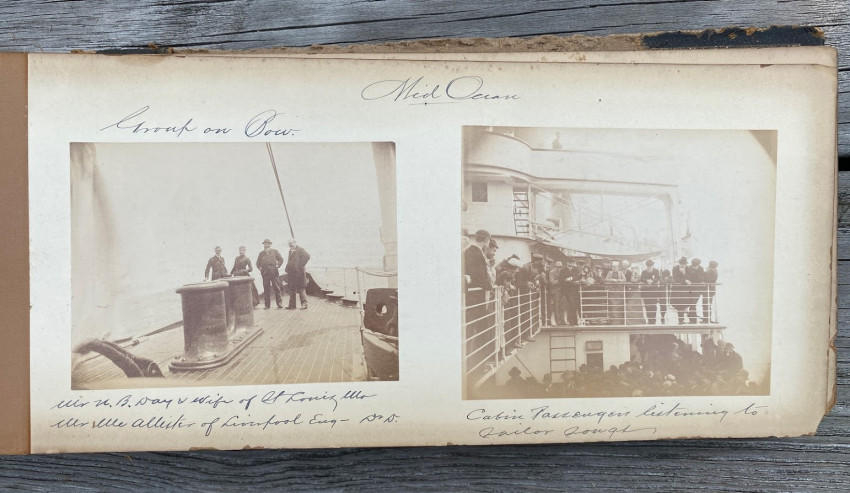 Mid Ocean
Group on Bow.
Mr N. B. Day & wife of St Louis, Mo
Mr McAllister of Liverpool Eng - D.D.
Cabin Passengers listening to
Sailor Songs